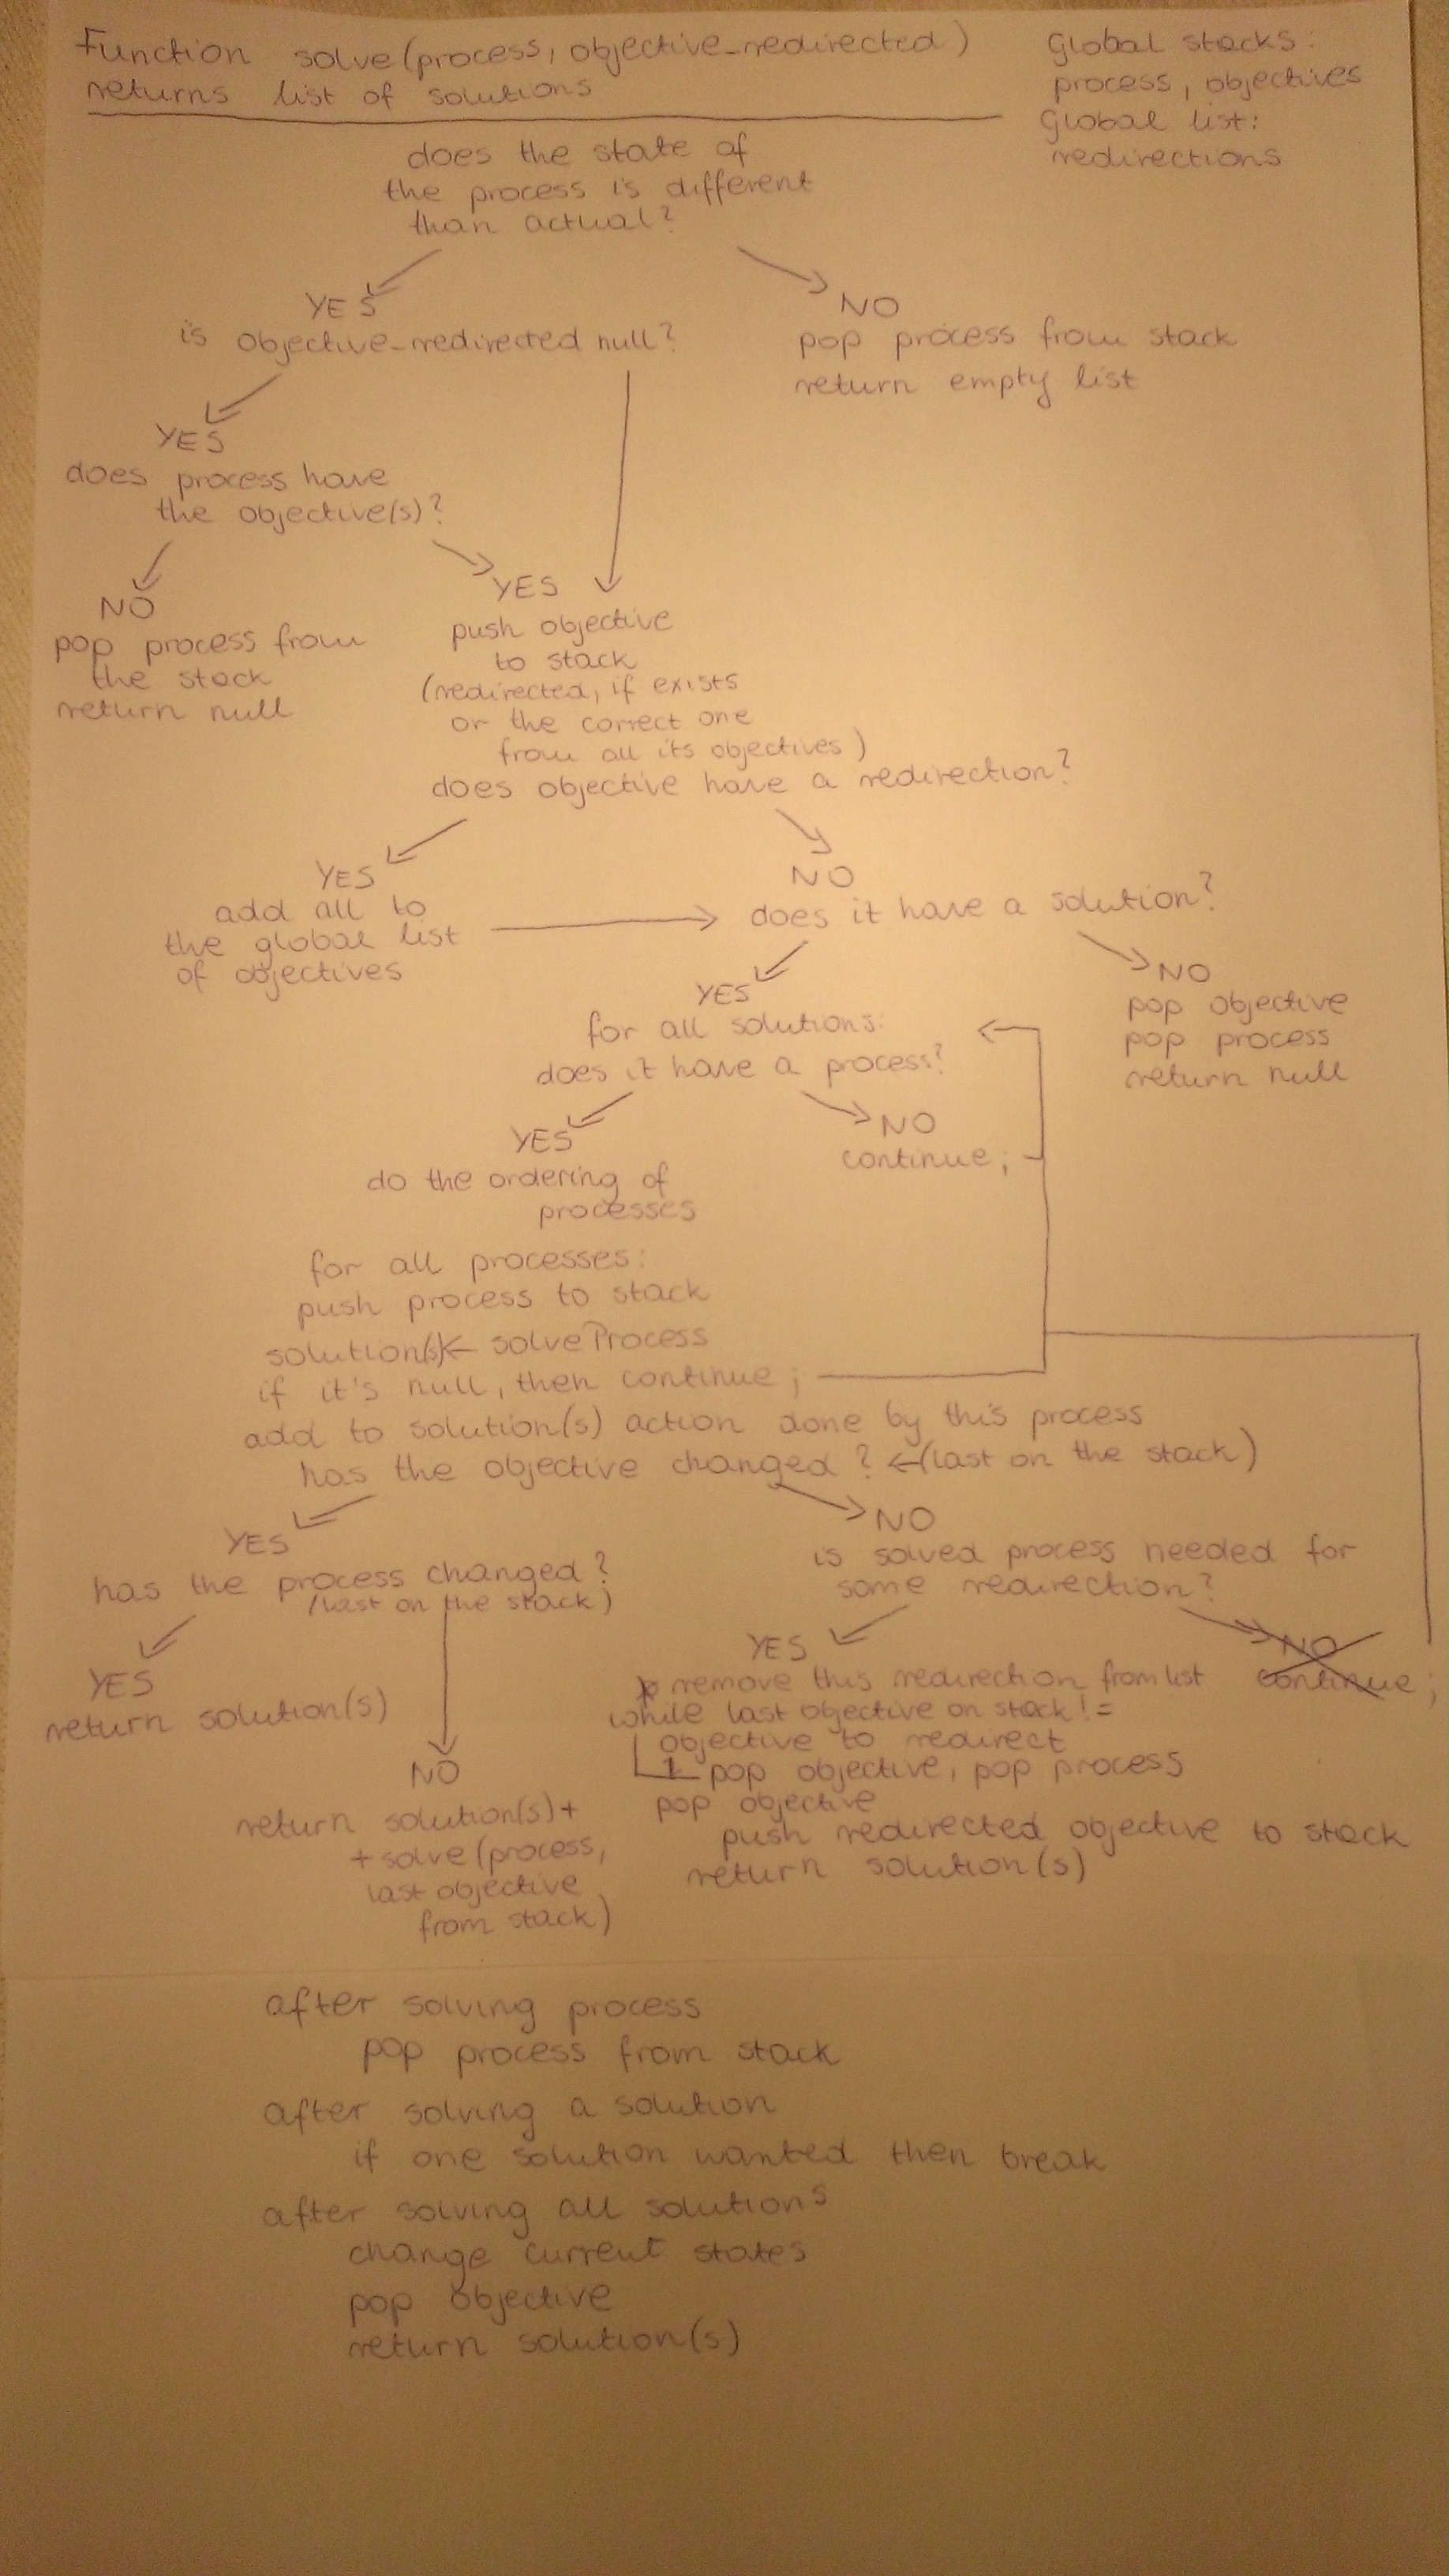 Function solve(process, objective_redirected)
returns list of solutions
Global stacks:
process, objectives
Global list:
redirections
does the state of
the process is different
than actual?
YES
is objective_redirected null?
NO
pop process from stack
return empty list
YES
does process have
the objective(s)?
NO
pop process from
the stack
return null
YES
push objective
to stack
(redirected, if exists
or the correct one
from all its objectives)
does objective have a redirection?
YES
add all to
the global list
of objectives
NO
does it have a solution?
YES
for all solutions:
does it have a process?
NO
pop objective
pop process
return null
YES
do the ordering of
processes
NO
continue;
for all processes:
push process to stack
solution(s)← solveProcess
if it's null, then continue;
add to solution(s) action done by this process
has the objective changed? ←(last on the stack)
YES
has the process changed?
(last on the stack)
NO
is solved process needed for
some redirection?
YES
return solution(s)
NO
return solution(s)+
+solve(process,
last objective
from stack)
YES
remove this redirection from list
while last objective on stack !=
objective to redirect
pop objective, pop process
pop objective
push redirected objective to stack
return solution(s)
NO
continue;
after solving process
pop process from stack
after solving a solution
if one solution wanted then break
after solving all solutions
change current states
pop objective
return solution(s)